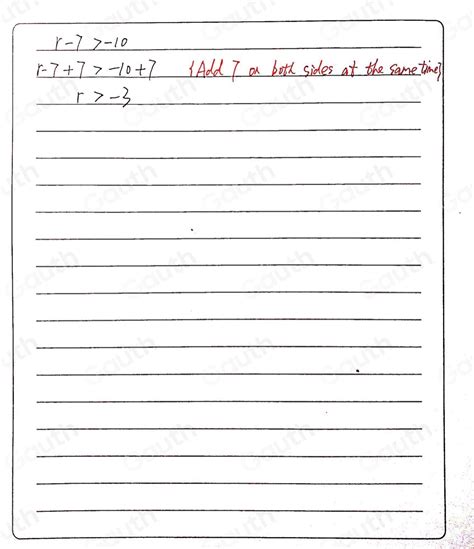 r-7 >-10
r-7+7 > -10+7 {Add 7 on both sides at the same time}
r > -3